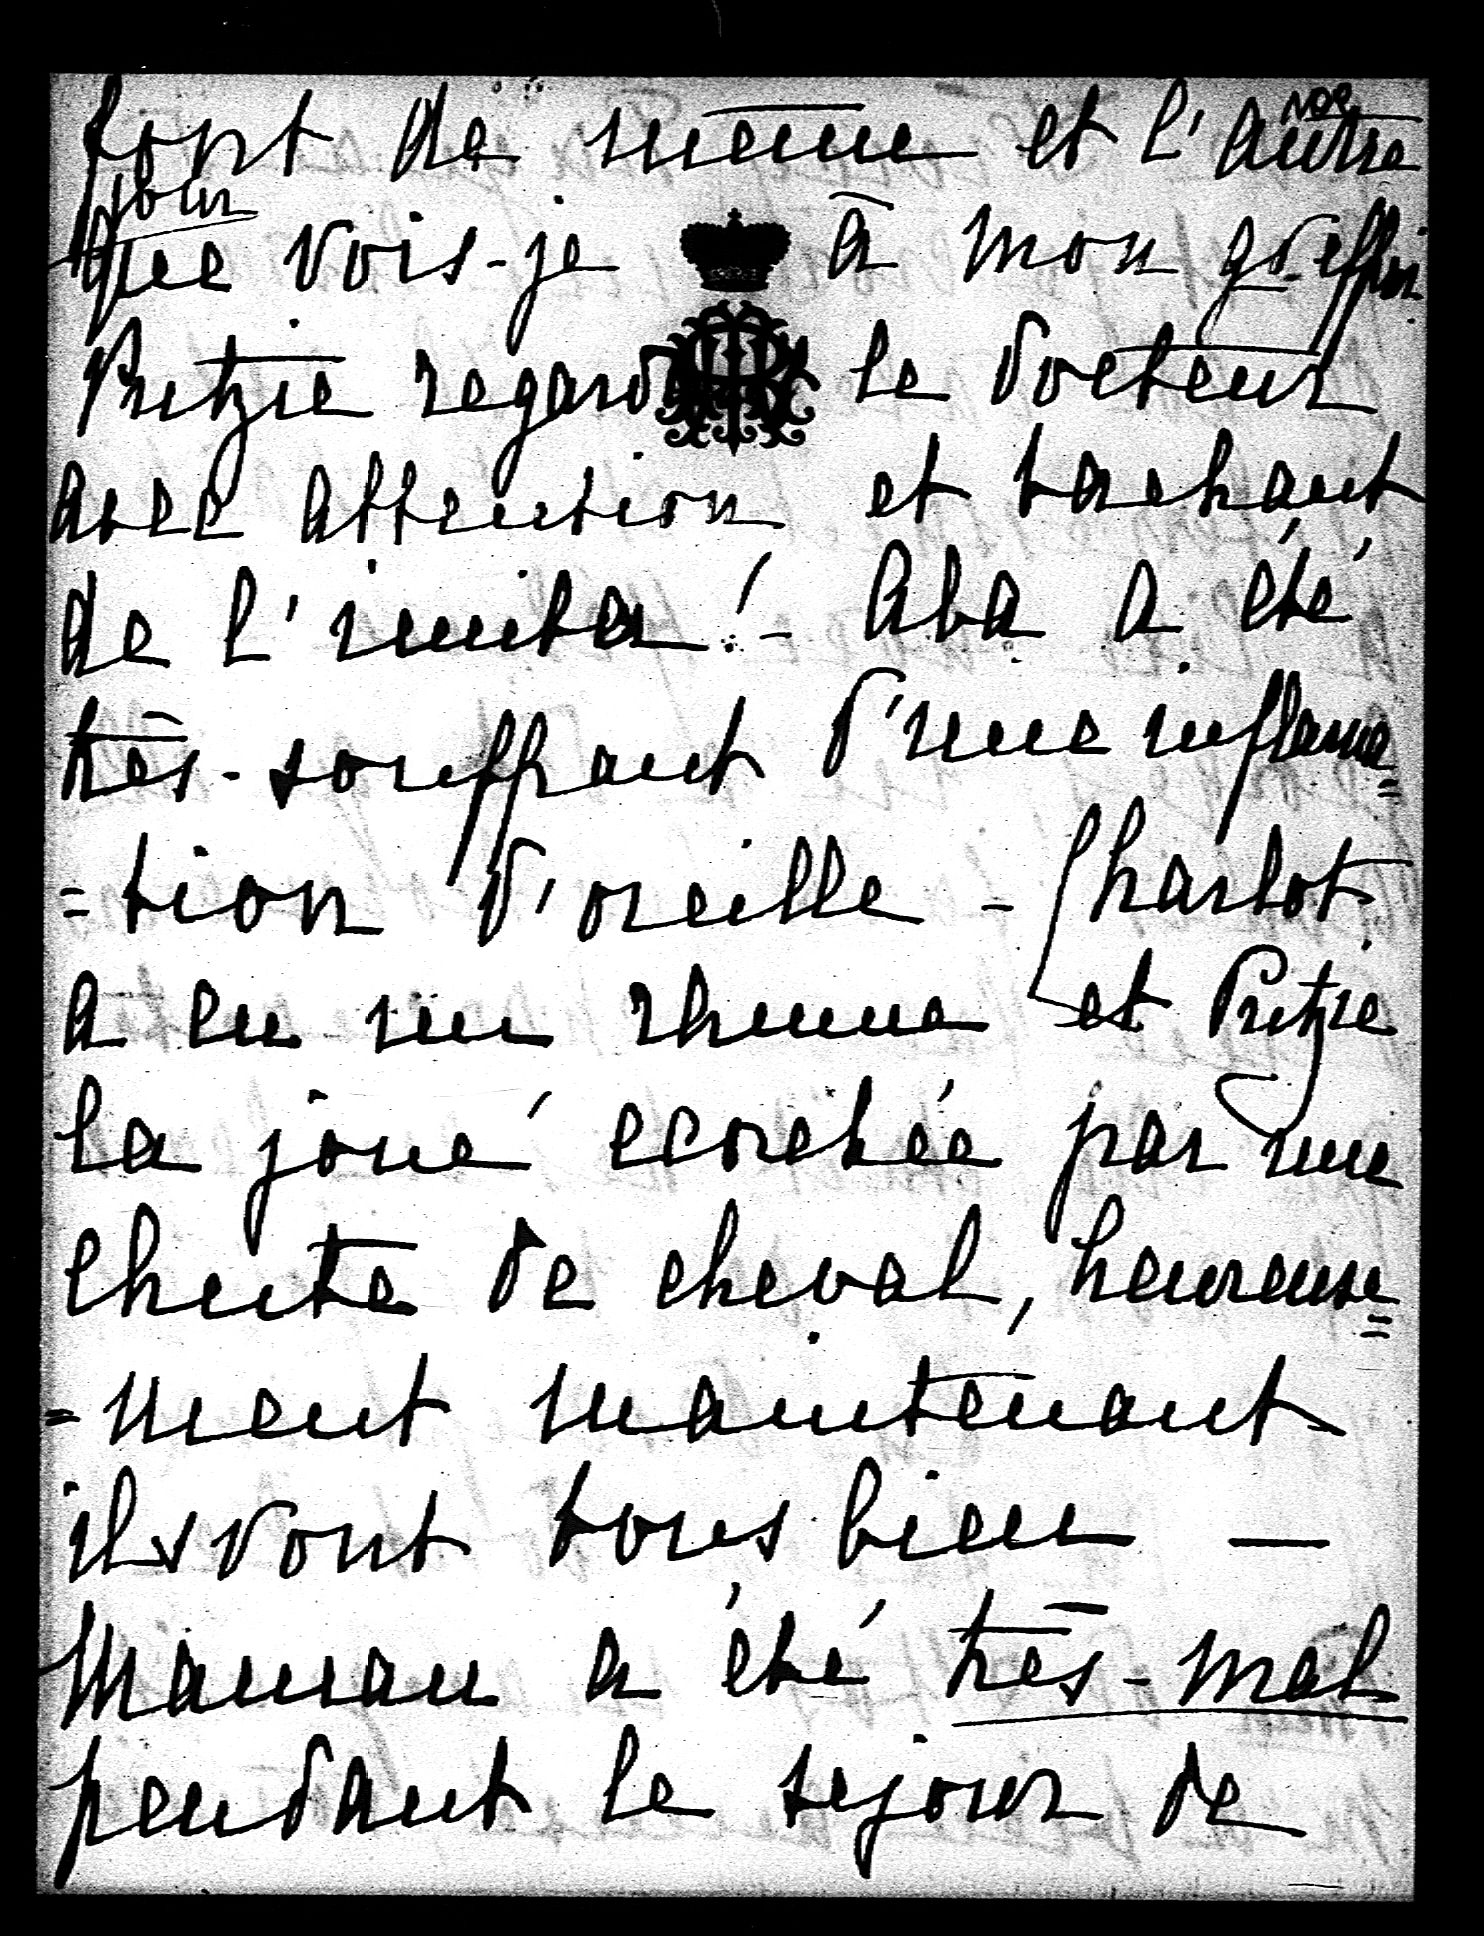 font de même et l'autre
jour
que vois-je à mon greffin
Pritzie regarder le docteur
avec attention et tachant
de l'imiter! - Aba a été
très-souffrant d'une inflama=
=tion d'oreille - Charlot
a eu un rhume et Pritzie
la joué ecorchée par une
chute de cheval, heureuse=
=ment maintenant
ils vont tous bien —
Maman a été très-mal
pendant le sejour de